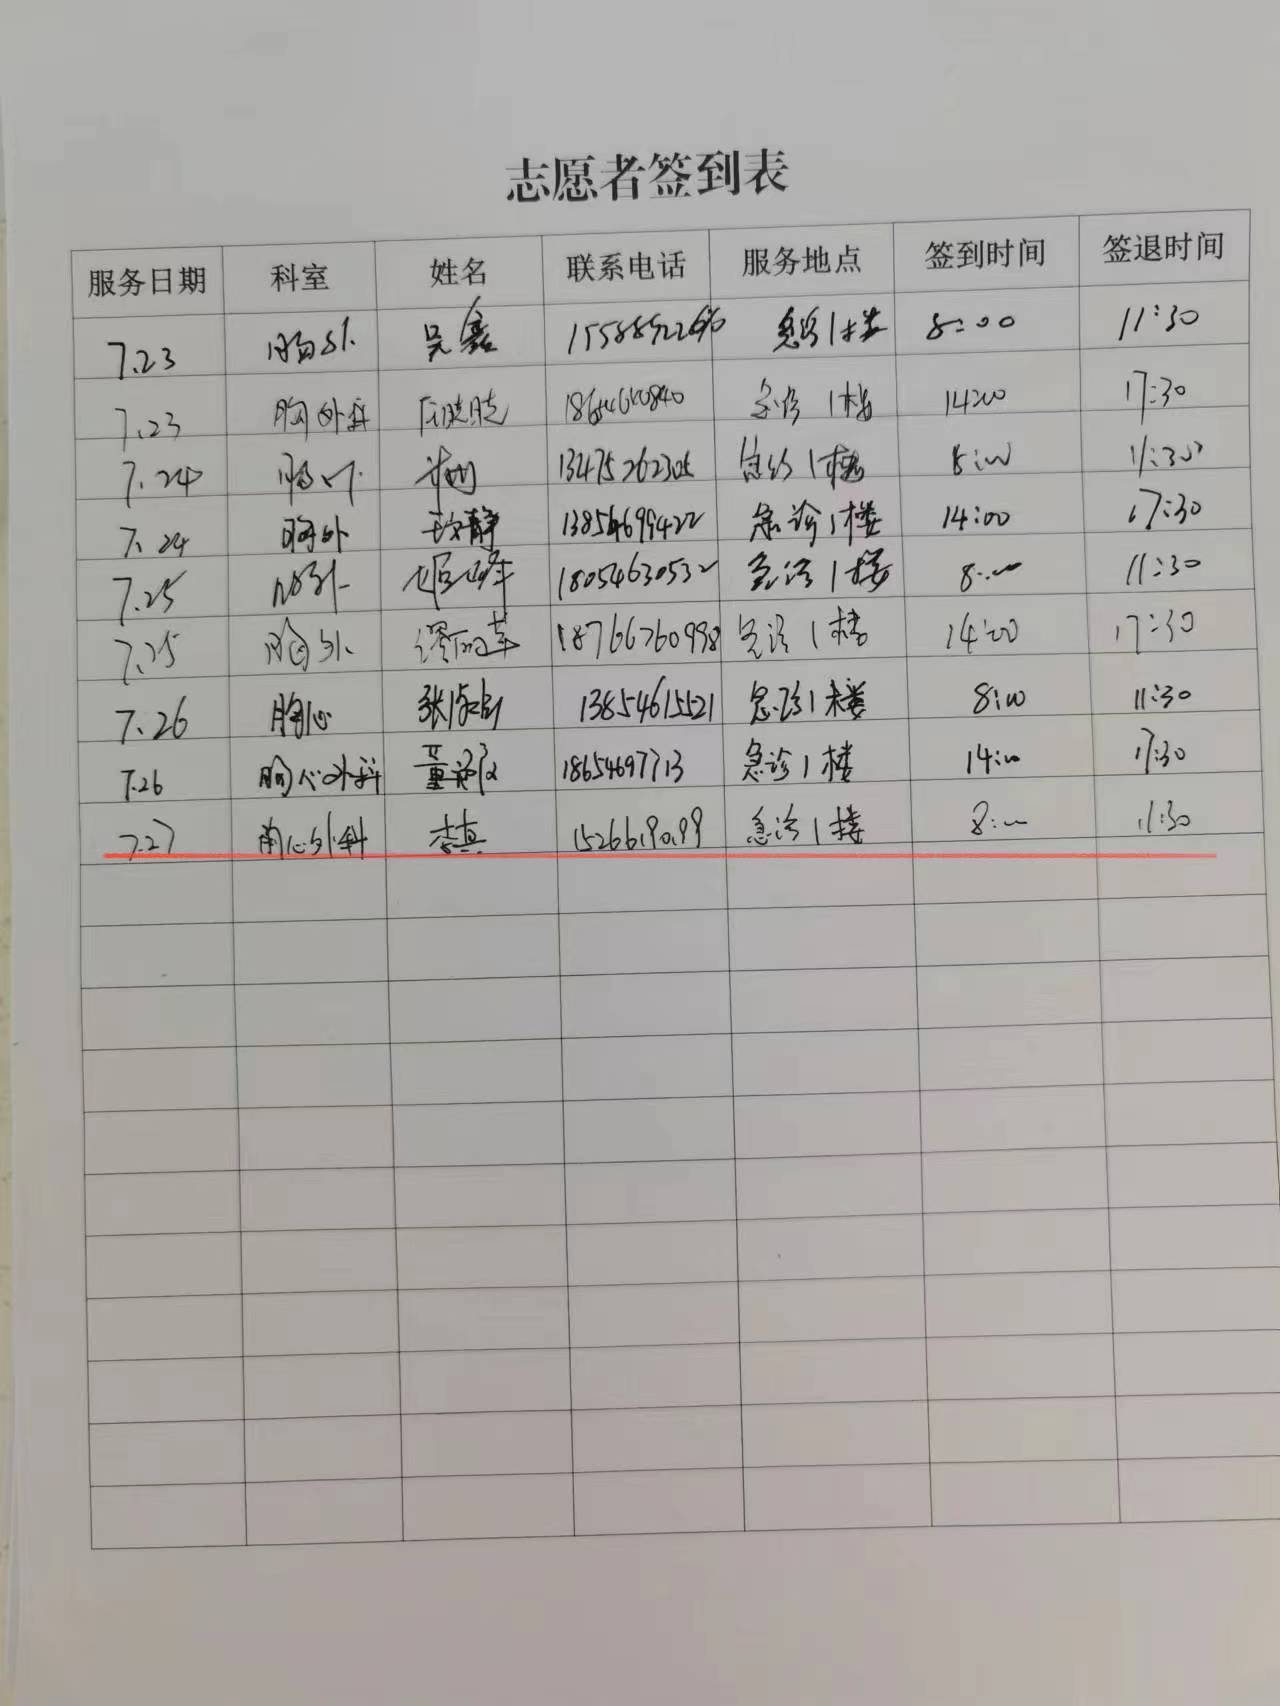 志愿者签到表
服务日期 科室 姓名 联系电话 服务地点 签到时间 签退时间
7.23 胸外 吴 急诊1楼 8:00 11:30
7.23 胸外科 急诊1楼 14:00 17:30
7.24 胸外 急诊1楼 8:00 11:30
7.24 胸外 静 13854699422 急诊1楼 14:00 17:30
7.25 胸外 18054630532 急诊1楼 8:00 11:30
7.25 胸外 18766760998 急诊1楼 14:00 17:30
7.26 胸心 张 13854615521 急诊1楼 8:00 11:30
7.26 胸心外科 董 18654697713 急诊1楼 14:00 17:30
7.27 胸心外科 李真 15266190199 急诊1楼 8:00 11:30